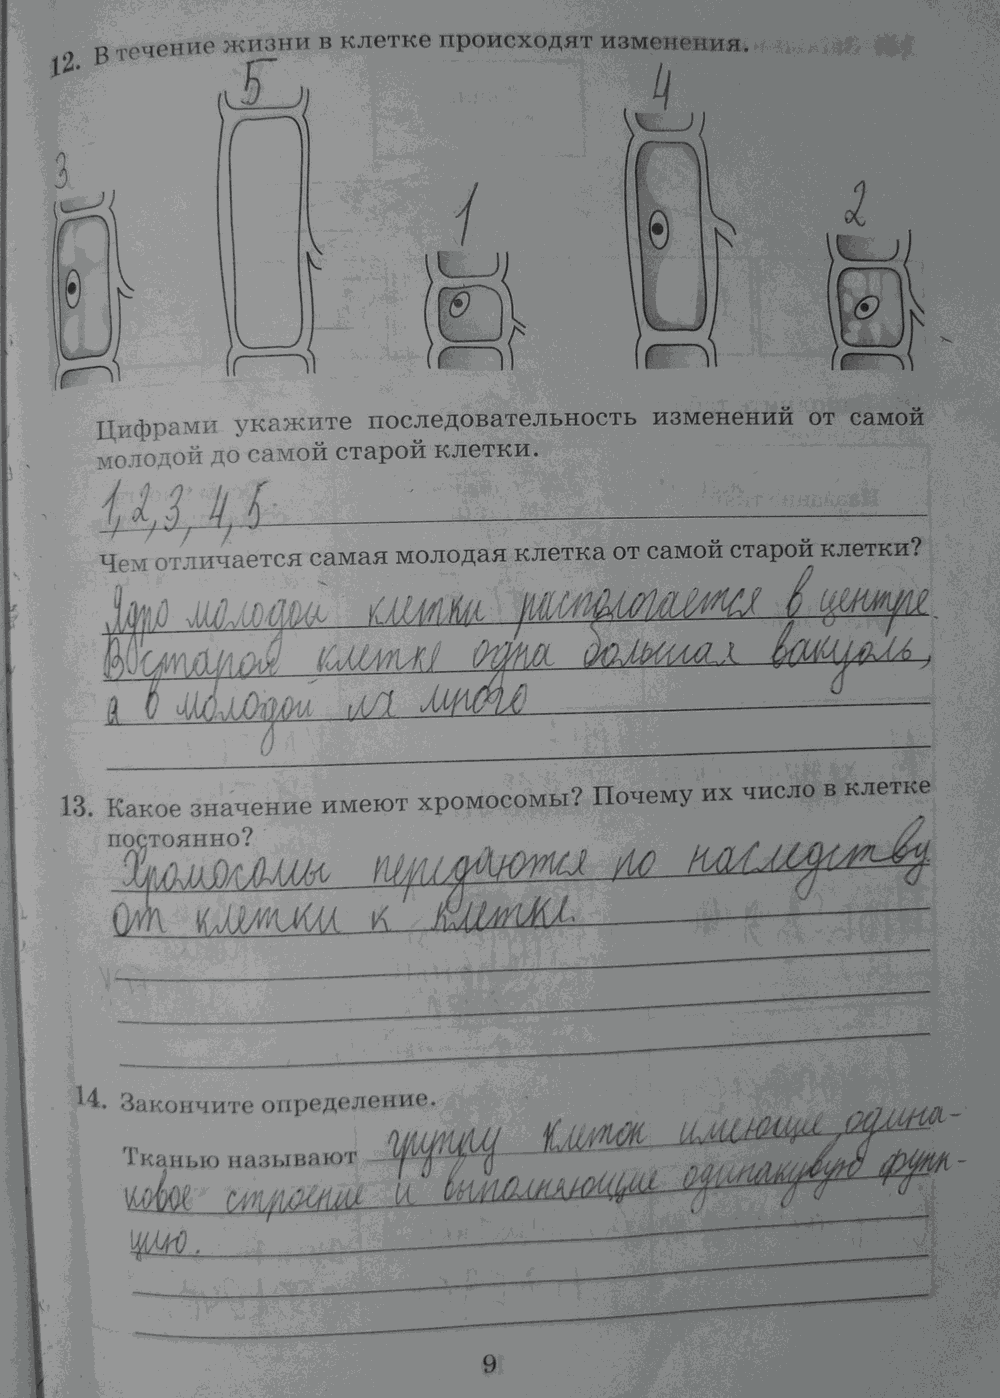 12. В течение жизни в клетке происходят изменения.
5
4
3
1
2
Цифрами укажите последовательность изменений от самой
молодой до самой старой клетки.
1, 2, 3, 4, 5
Чем отличается самая молодая клетка от самой старой клетки?
Ядро молодой клетки распологается в центре
В старой клетке одна большая вакуоль,
а в молодой их много
13. Какое значение имеют хромосомы? Почему их число в клетке
постоянно?
Хромосомы передаются по наследству
от клетки к клетке.
14. Закончите определение.
Тканью называют группу клеток имеющие одина-
ковое строение и выполняющие одинакувую функ-
цию.
9